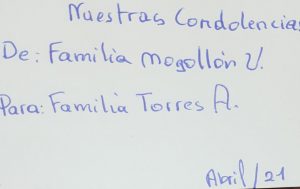 Nuestras Condolencias
De: Familia Mogollón V.
Para: Familia Torres A.
Abril/21